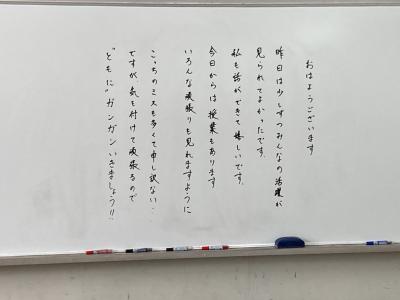 おはようございます
昨日は少しずつみんなの活躍が
見られてよかったです。
私も話ができて嬉しいです。
今日からは授業もあります
いろんな頑張りも見れますように
こっちのミスも多くて申し訳ない…
ですが気を付けて頑張るので
"ともに"ガンガンいきましょう!!